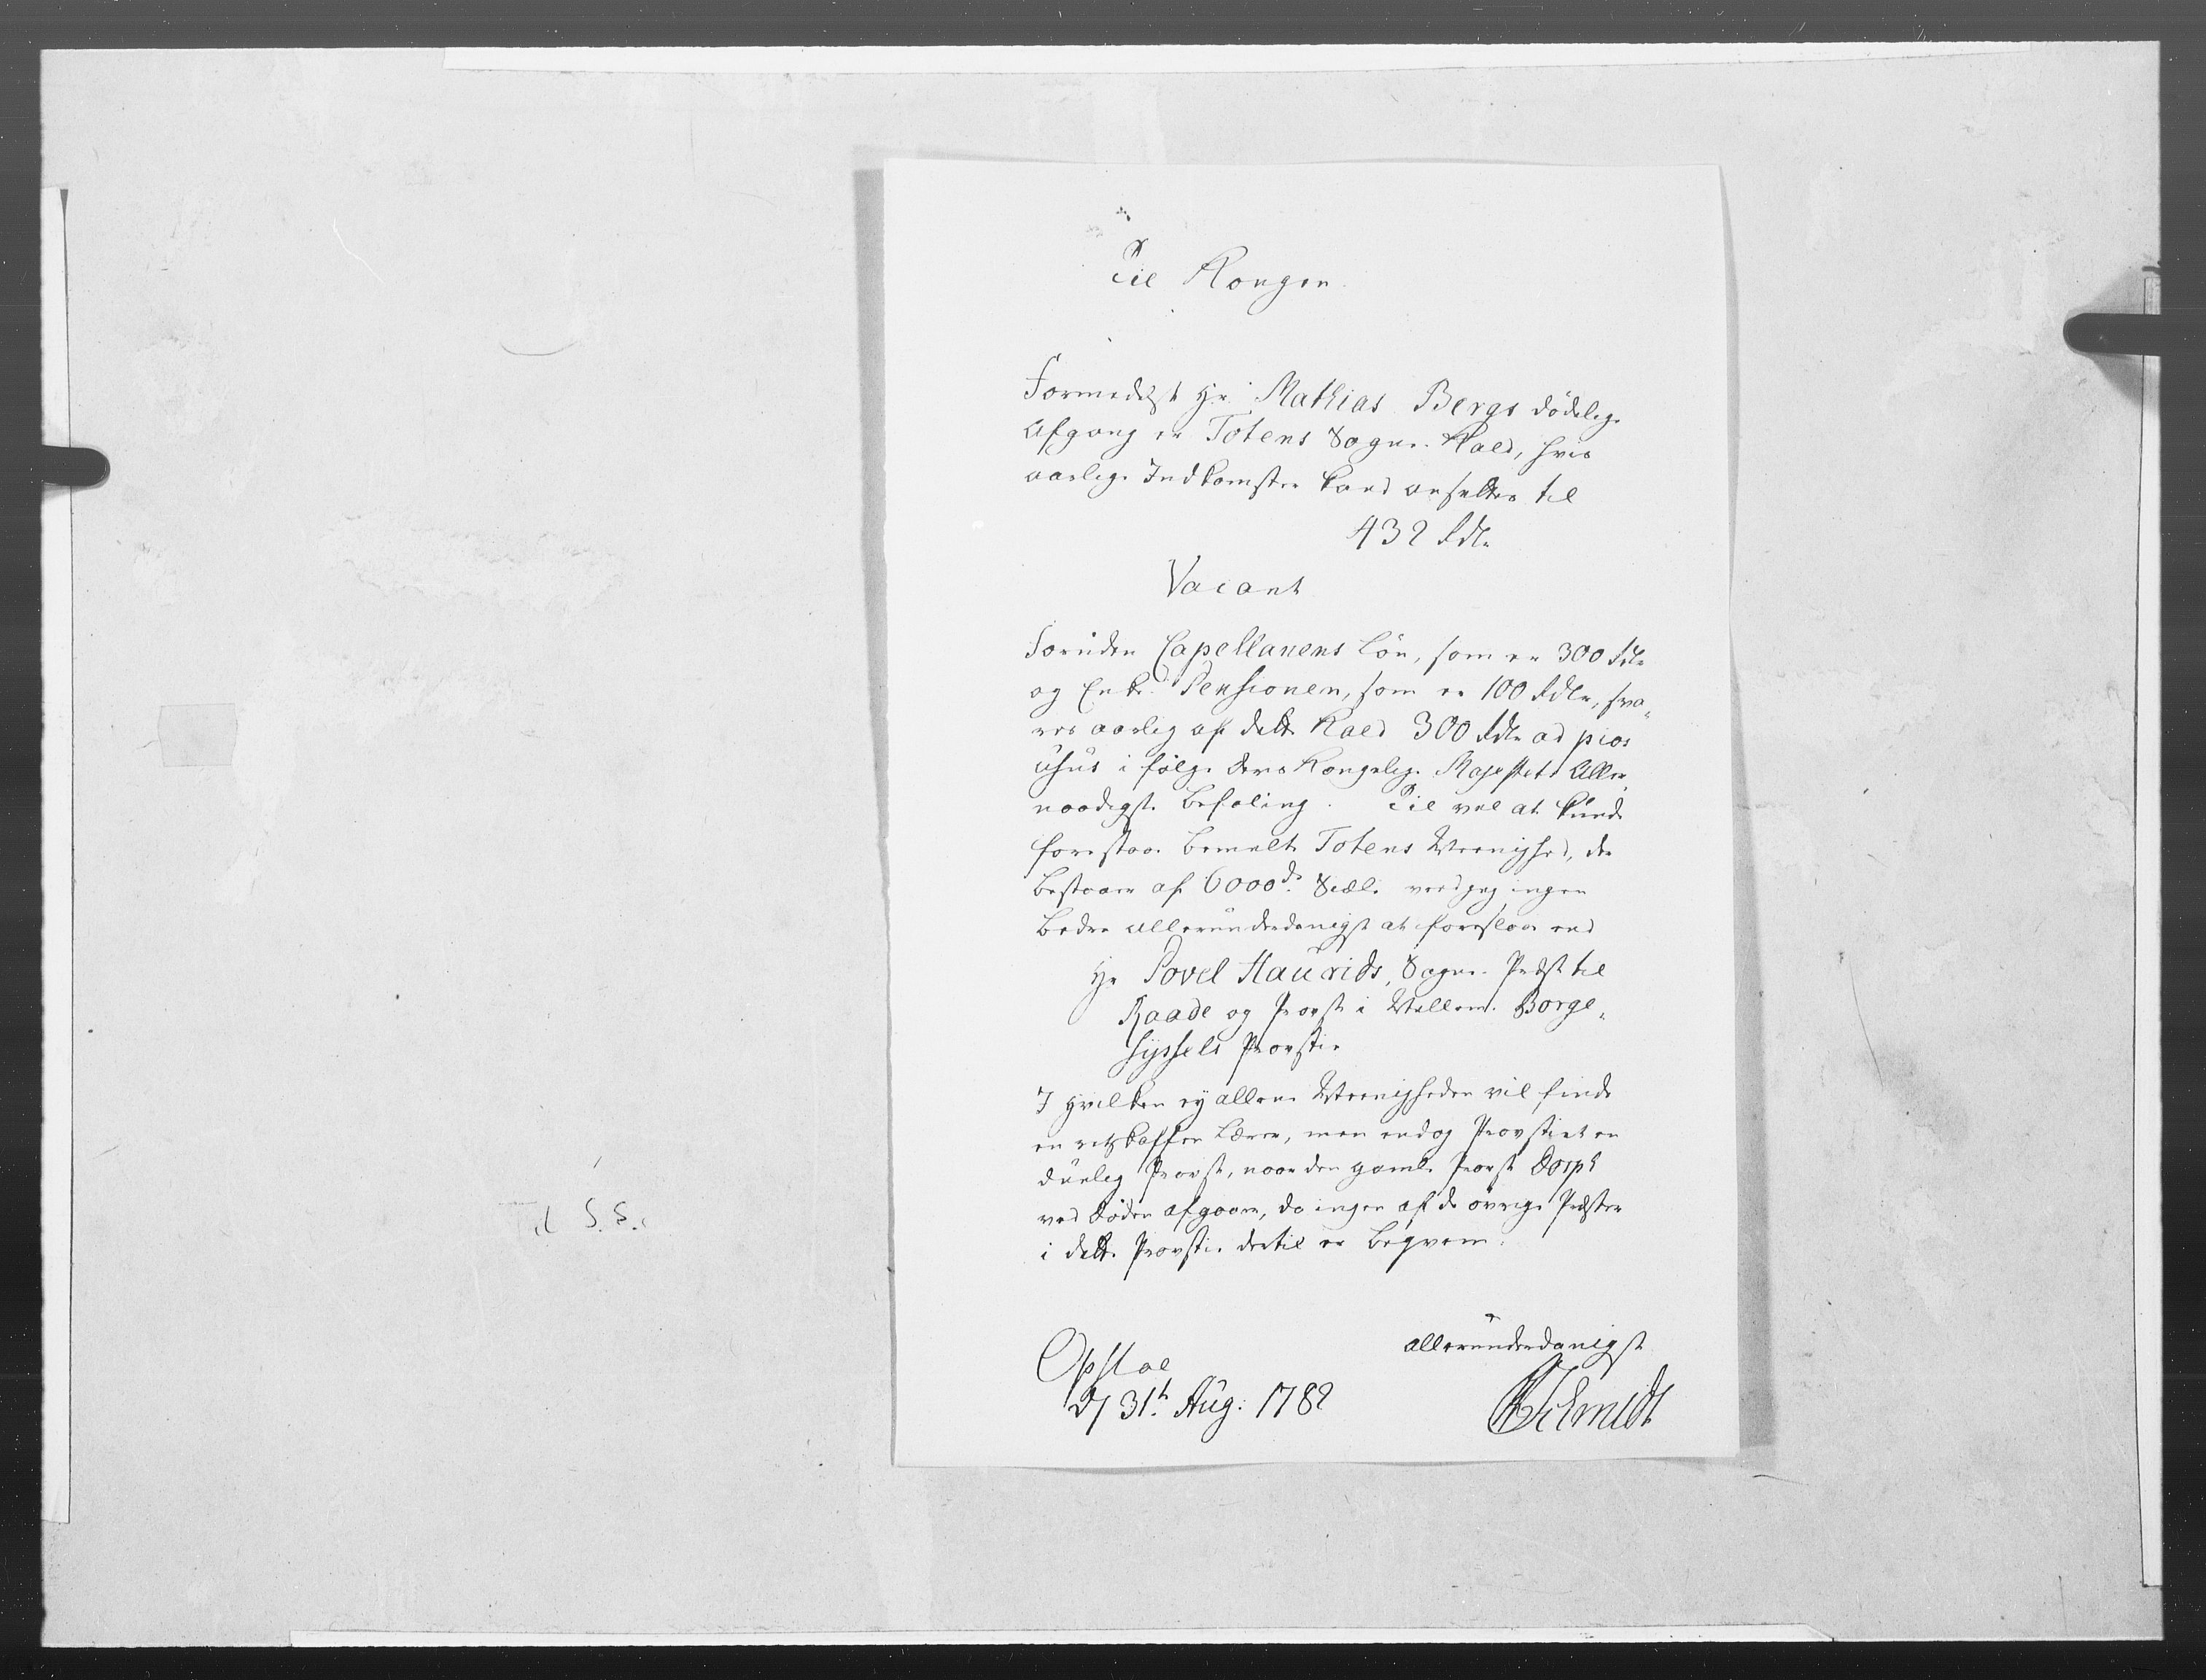 Til Kongen.
Formedelst Hr Mathias Bergs dödelige
Afgang er Totens Sogne-Kald, hvis
aarlige Indkomster kand ansettes til
432 Rdlr
Vacant
Foruden Capellanens Lön, som er 300 Rdlr
og Enke-Pensionen, som er 100 Rdlr, sva„
res aarlig af dette Kald 300 Rdlr ad pios
usus i fölge Deres Kongelige Majestets Aller„
naadigste Befaling. Til vel at kunde
forestaae bemelte Totens Meenighed, der
bestaaer af 6000de Siæle veed jeg ingen
bedre allerunderdanigst at foreslaae end
Hr Povel Haurids, Sogne-Præst til
Raade og Provst i Mellem-Borge„
syssels Provstie
I Hvilken ey allene Meenigheden vil finde
en retskaffen Lærer, men endog Provstiet en
duelig Provst, naar den gamle Provst Dorph
ved döden afgaaer, da ingen af de övrige Præster
i dette Provstie dertil er beqvem.
allerunderdanigst
Opsloe
D/ 31t Aug: 1782
Schmidt
Til S. S.